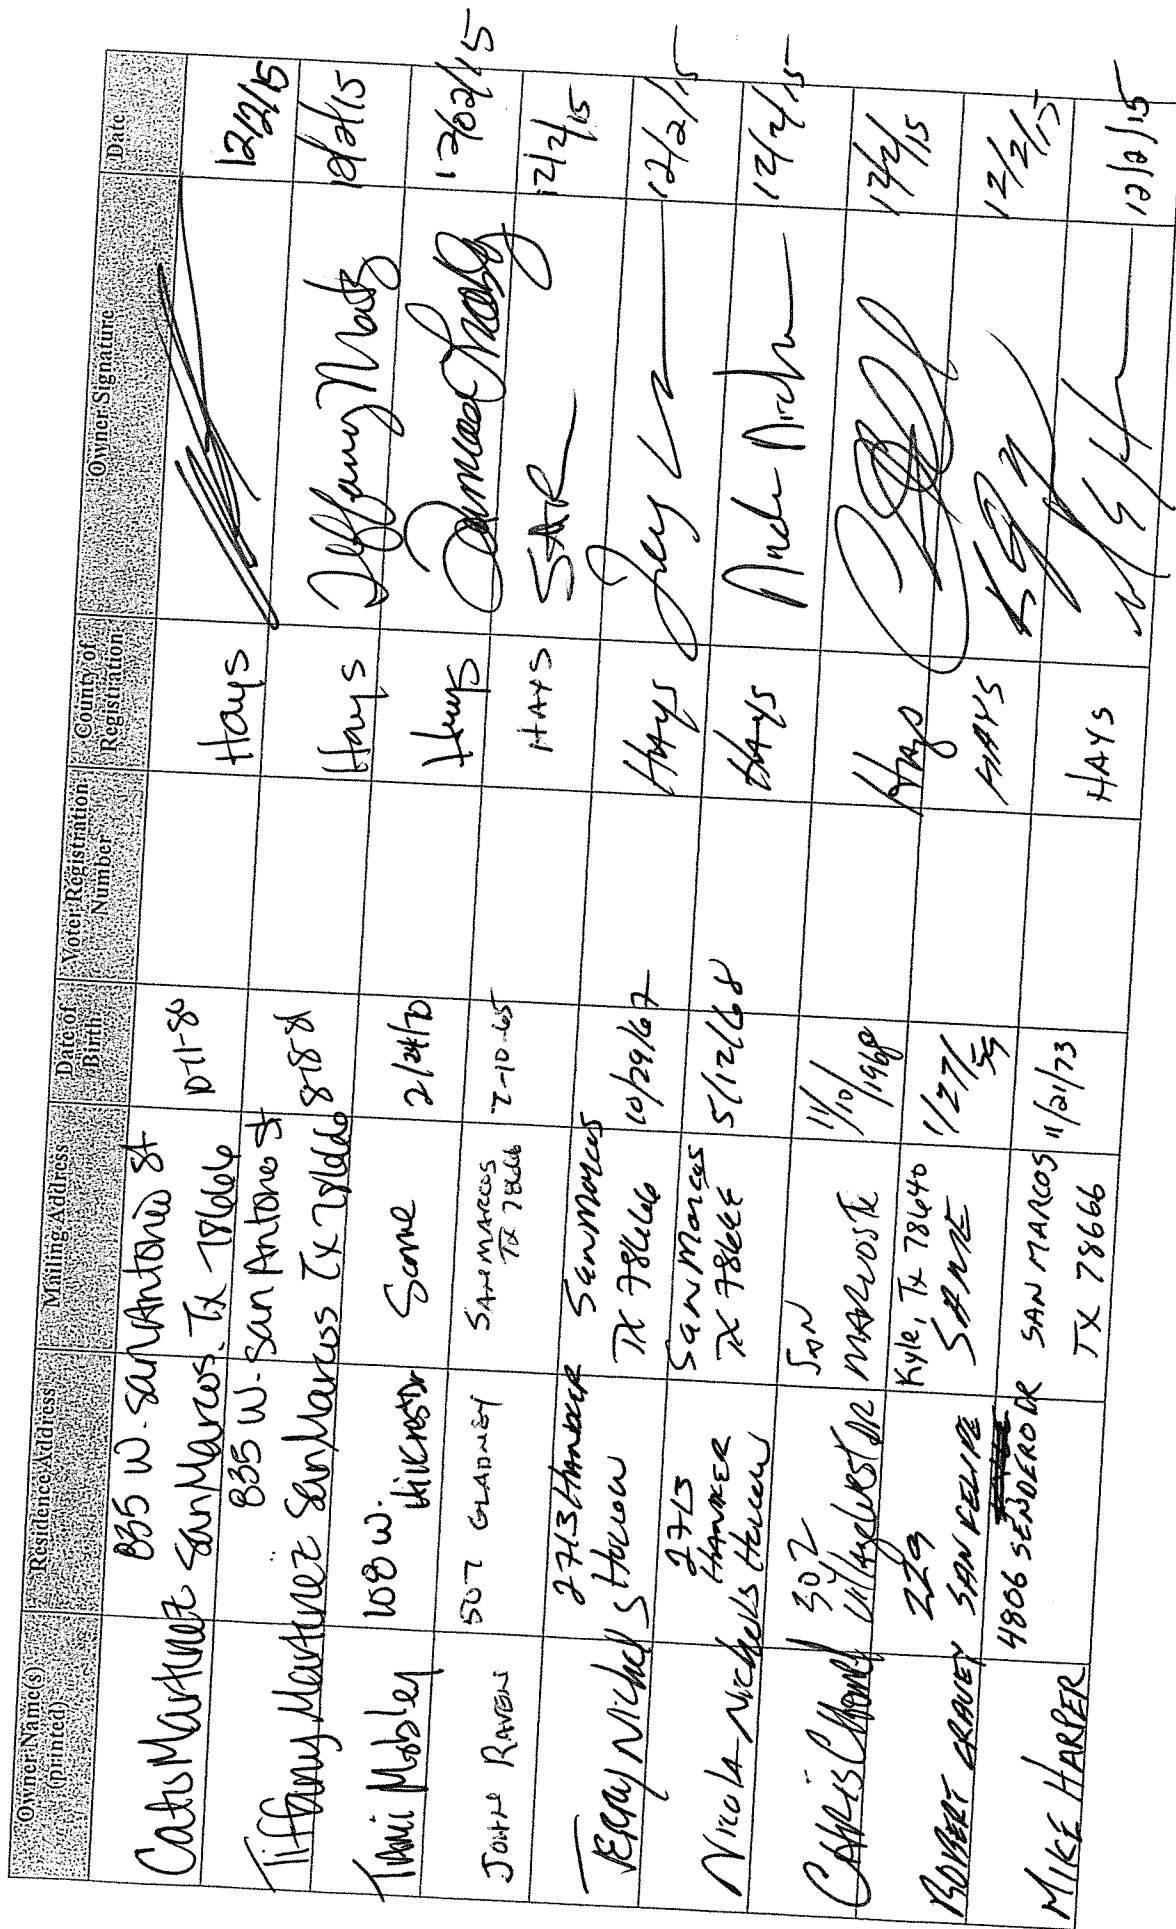 Owner Name(s) (printed) Residence Address Mailing Address Date of Birth Voter Registration Number County of Registration Owner Signature Date
835 W. San Antonio St
Martinez San Marcos, Tx 78666 10-11-80 Hays 12/2/15
835 W. San Antonio St
Tiffany Martinez San Marcos Tx 78666 8-18-81 Hays Tiffany 12/2/15
Tammi Mobley 108 W. Hillcrest Dr Same 2/24/70 Hays 12/02/15
John Raven 507 Gladney San Marcos TX 78666 7-10-65 HAYS 12/2/15
Jerry Nichols 2713 Hollow San Marcos TX 78666 10/29/67 Hays Jerry 12/2/15
Nicola Nichols 2713 Hollow San Marcos TX 78666 5/12/68 Hays 12/2/15
Chris 302 DR San Marcos Tx 11/10/1968 Hays 12/2/15
Robert 229 San Felipe Kyle, Tx 78640 SAME 1/27/55 HAYS 12/2/15
MIKE HARPER 4806 SENDERO DR SAN MARCOS TX 78666 11/21/73 HAYS 12/2/15